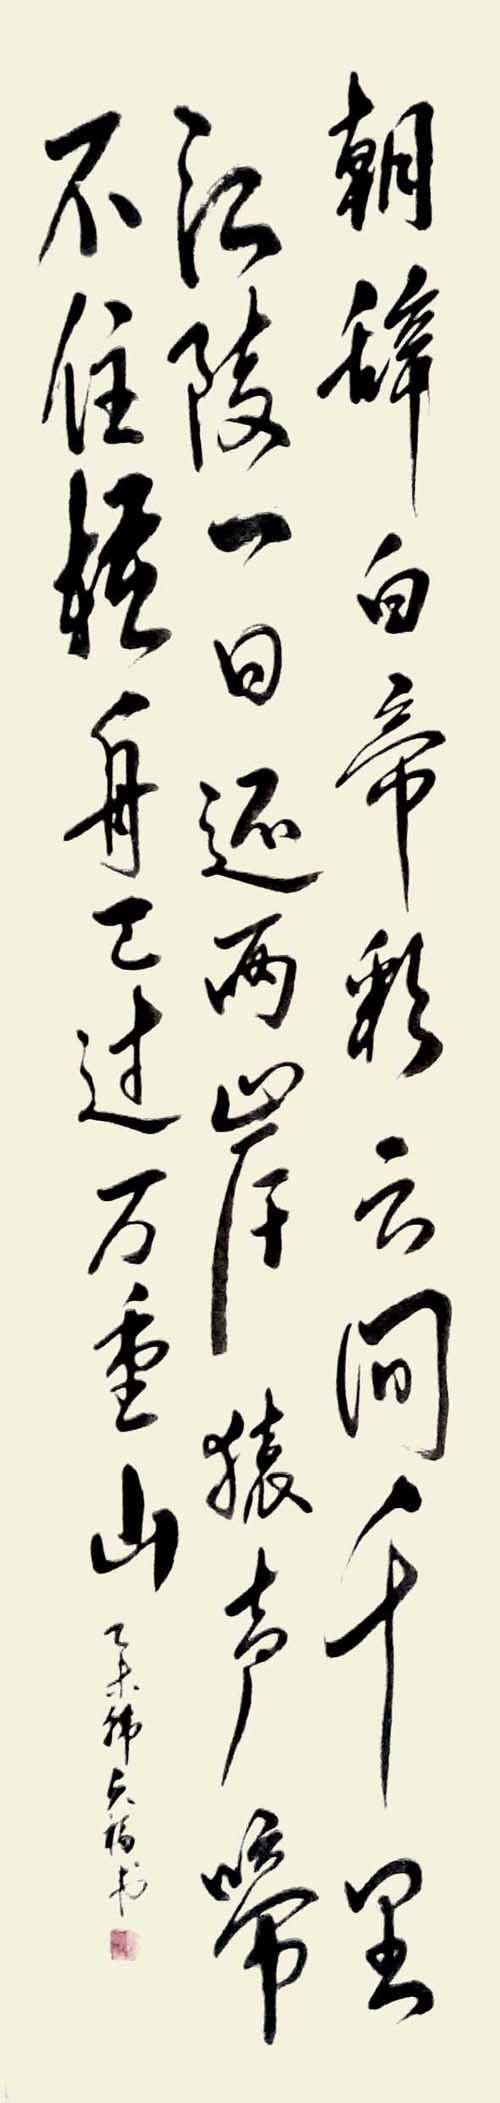 朝辞白帝彩云间千里
江陵一日还两岸猿声啼
不住轻舟已过万重山
乙未书